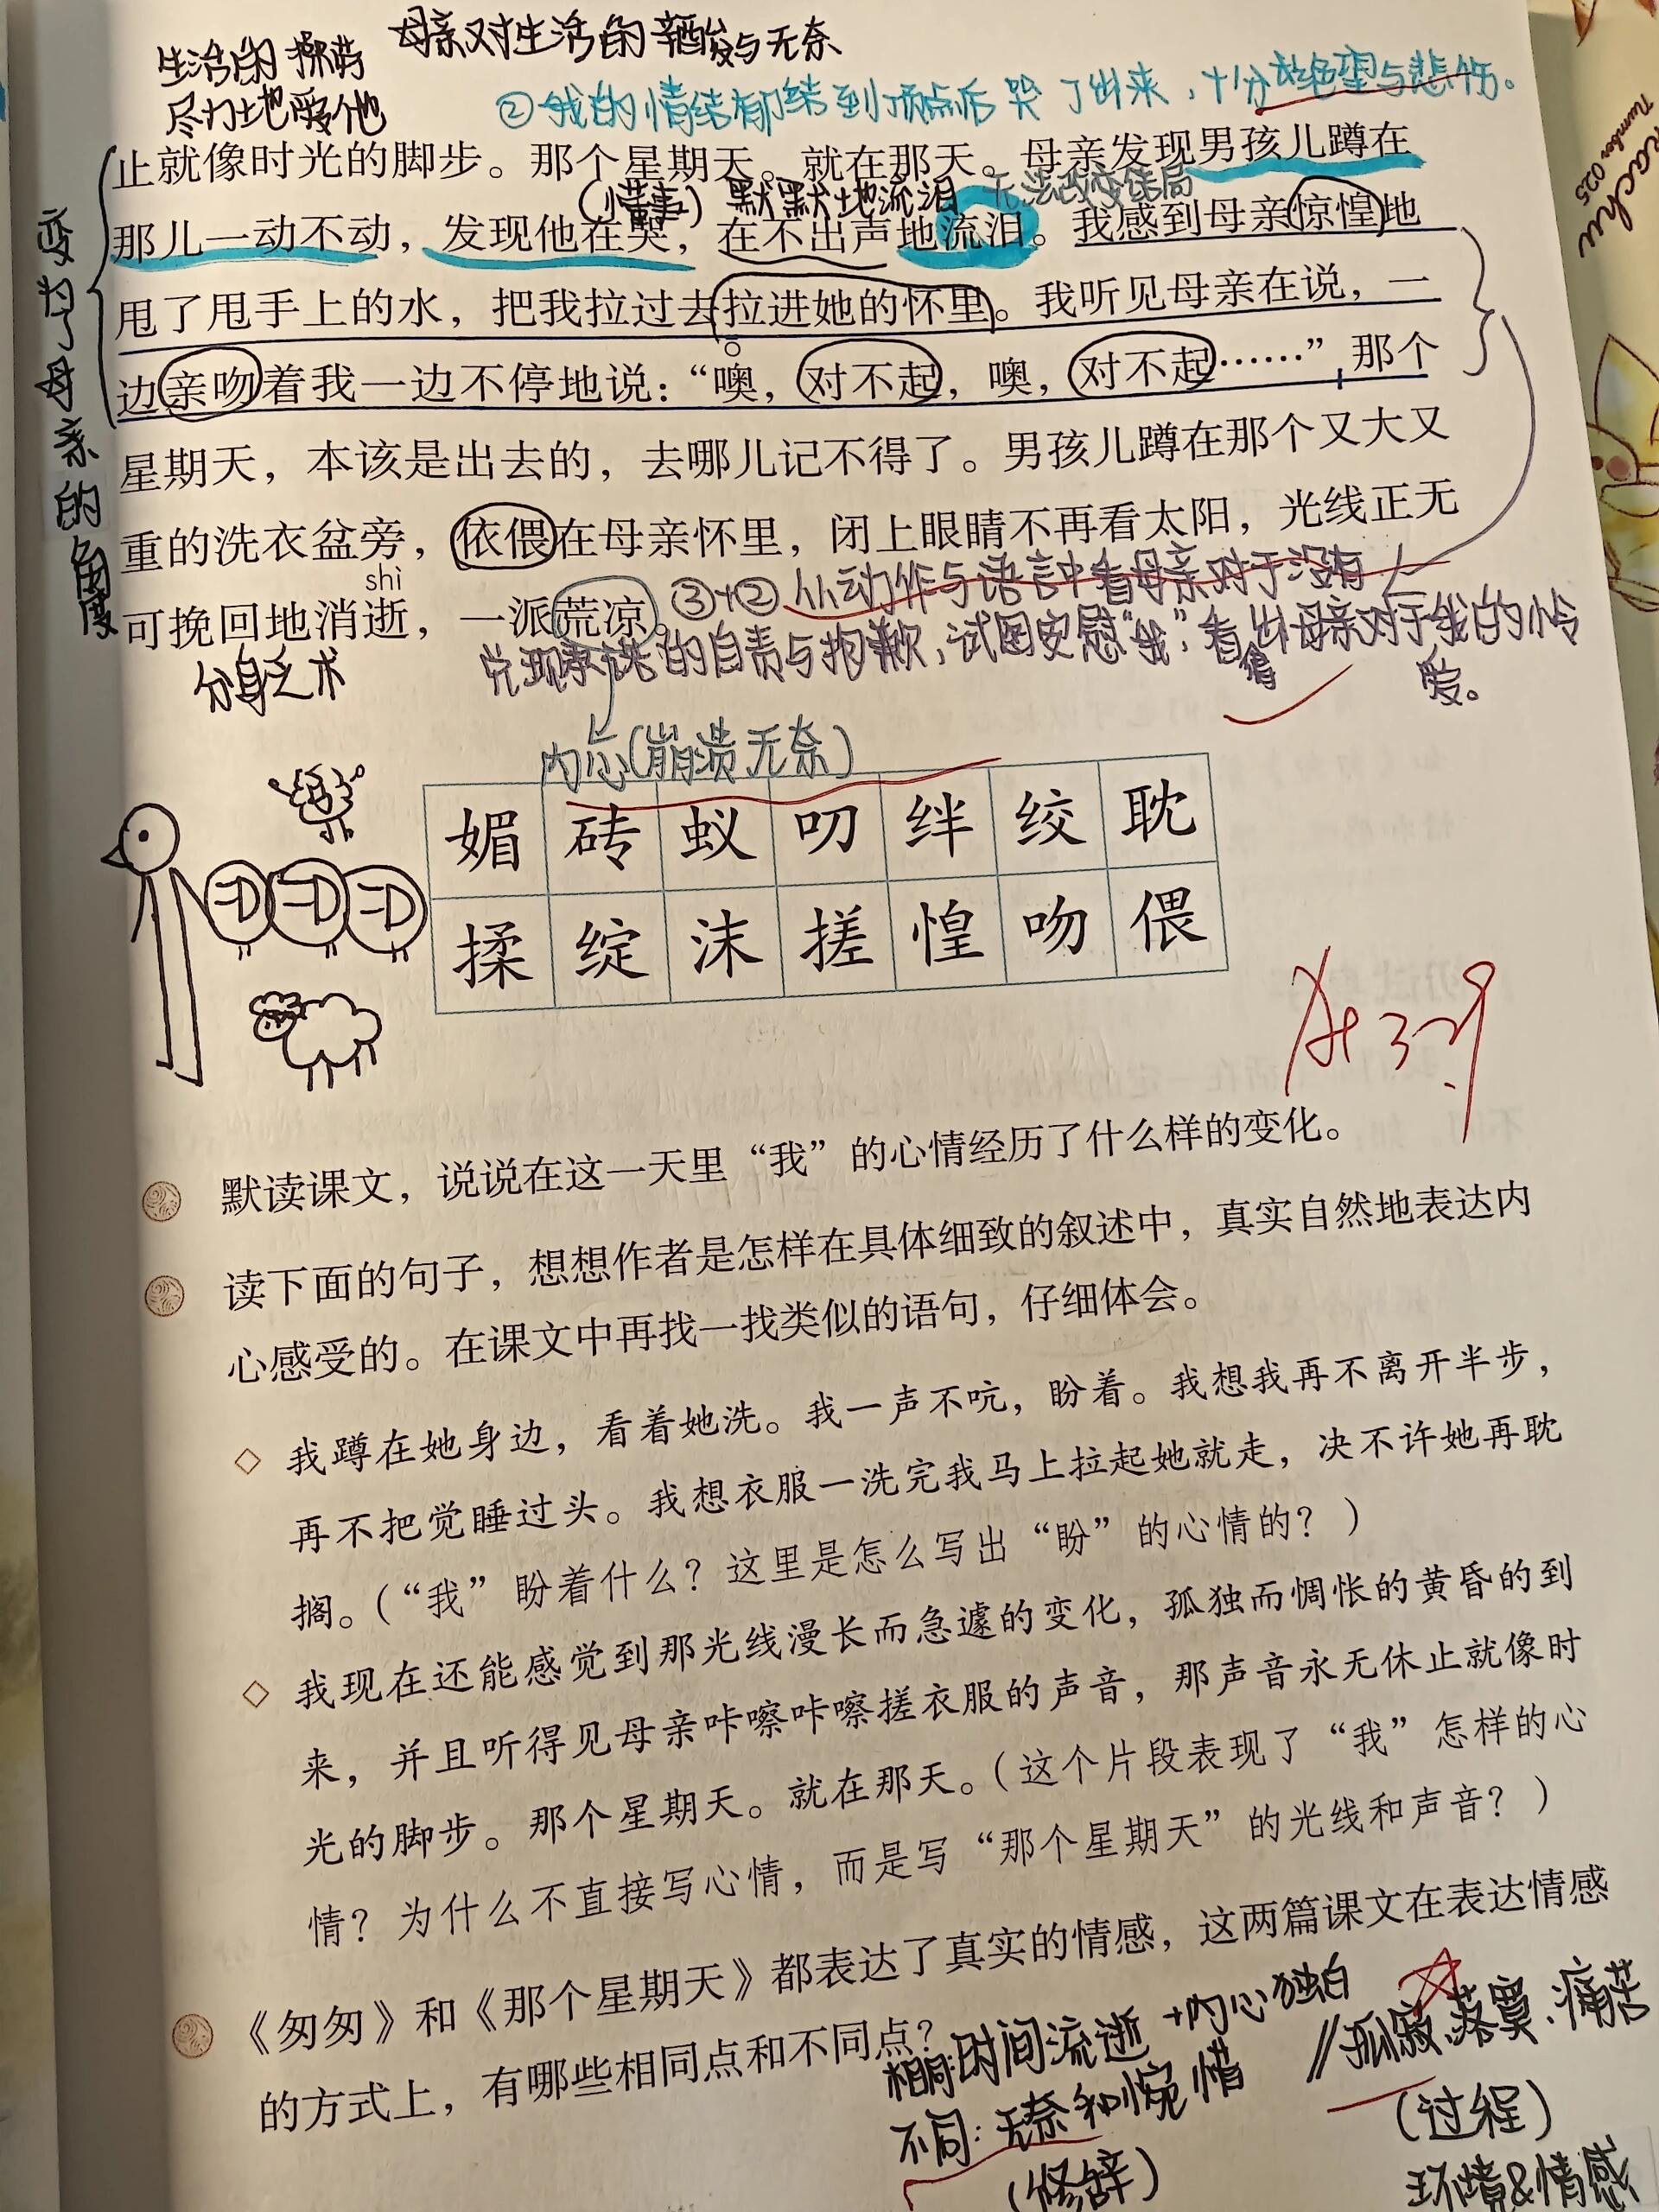 母亲对生活的辛酸与无奈
生活的操劳
尽力地爱他
②我的情绪郁结到顶点后哭了出来，十分绝望与悲伤。
止就像时光的脚步。那个星期天。就在那天。母亲发现男孩儿蹲在
(懂事)默默地流泪 无法改变结局
那儿一动不动，发现他在哭，在不出声地流泪。我感到母亲惊惶地
甩了甩手上的水，把我拉过去拉进她的怀里。我听见母亲在说，一
边亲吻着我一边不停地说：“噢，对不起，噢，对不起……”那个
星期天，本该是出去的，去哪儿记不得了。男孩儿蹲在那个又大又
重的洗衣盆旁，依偎在母亲怀里，闭上眼睛不再看太阳，光线正无
shì
可挽回地消逝，一派荒凉。
变为了母亲的角度
③+② 从动作与语言中看母亲对于没有
兑现承诺的自责与抱歉，试图安慰“我”，看得出母亲对于我的怜
爱。
分身乏术
内心(崩溃无奈)
媚 砖 蚁 叨 绊 绞 耽
揉 绽 沫 搓 惶 吻 偎
3.29
默读课文，说说在这一天里“我”的心情经历了什么样的变化。
读下面的句子，想想作者是怎样在具体细致的叙述中，真实自然地表达内
心感受的。在课文中再找一找类似的语句，仔细体会。
我蹲在她身边，看着她洗。我一声不吭，盼着。我想我再不离开半步，
再不把觉睡过头。我想衣服一洗完我马上拉起她就走，决不许她再耽
搁。（“我”盼着什么？这里是怎么写出“盼”的心情的？）
我现在还能感觉到那光线漫长而急遽的变化，孤独而惆怅的黄昏的到
来，并且听得见母亲咔嚓咔嚓搓衣服的声音，那声音永无休止就像时
光的脚步。那个星期天。就在那天。（这个片段表现了“我”怎样的心
情？为什么不直接写心情，而是写“那个星期天”的光线和声音？）
《匆匆》和《那个星期天》都表达了真实的情感，这两篇课文在表达情感
的方式上，有哪些相同点和不同点？
相同：时间流逝 +内心独白
不同：无奈和惋惜 //孤寂、落寞、痛苦
(修辞) (过程)
环境&情感
Number 025